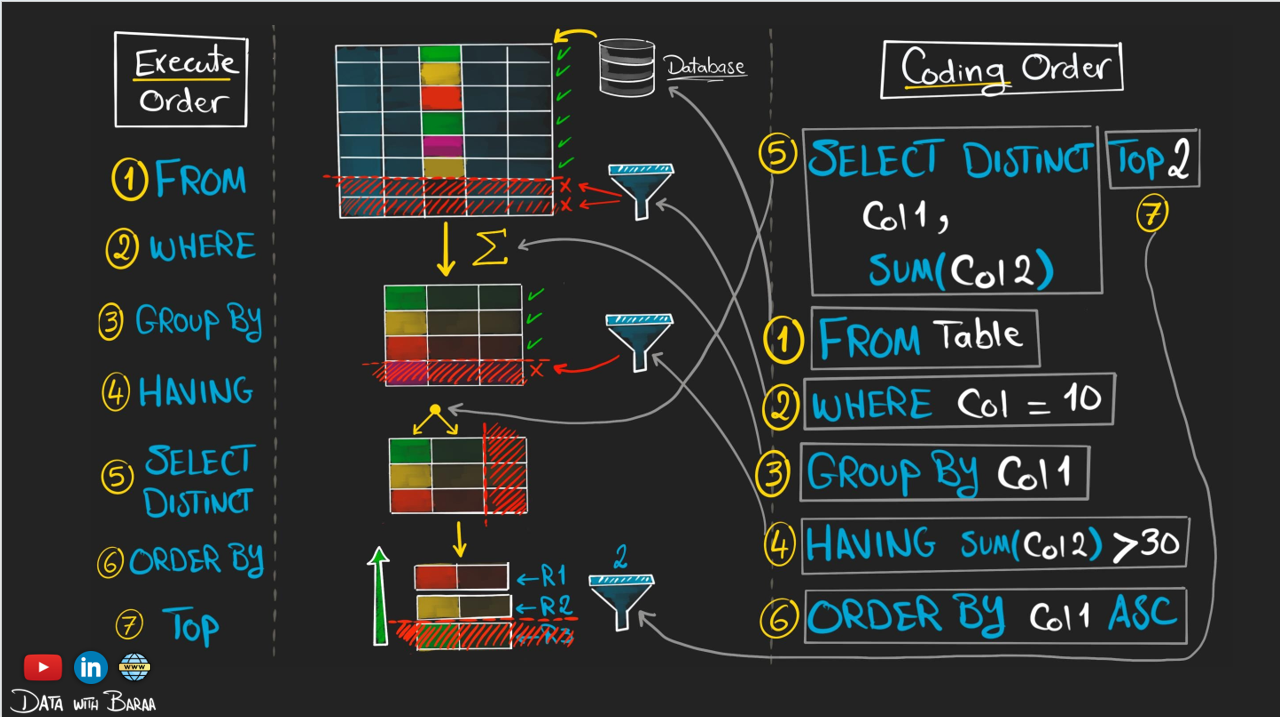 Execute
Order
1 FROM
2 WHERE
3 GROUP BY
4 HAVING
5 SELECT
DISTINCT
6 ORDER BY
7 TOP
Database
Σ
2
←R1
←R2
←R3
Coding Order
5 SELECT DISTINCT TOP 2
7
Col1,
SUM(Col2)
1 FROM Table
2 WHERE Col = 10
3 GROUP BY Col1
4 HAVING SUM(Col2) >30
6 ORDER BY Col1 ASC
in
WWW
DATA WITH BARAA